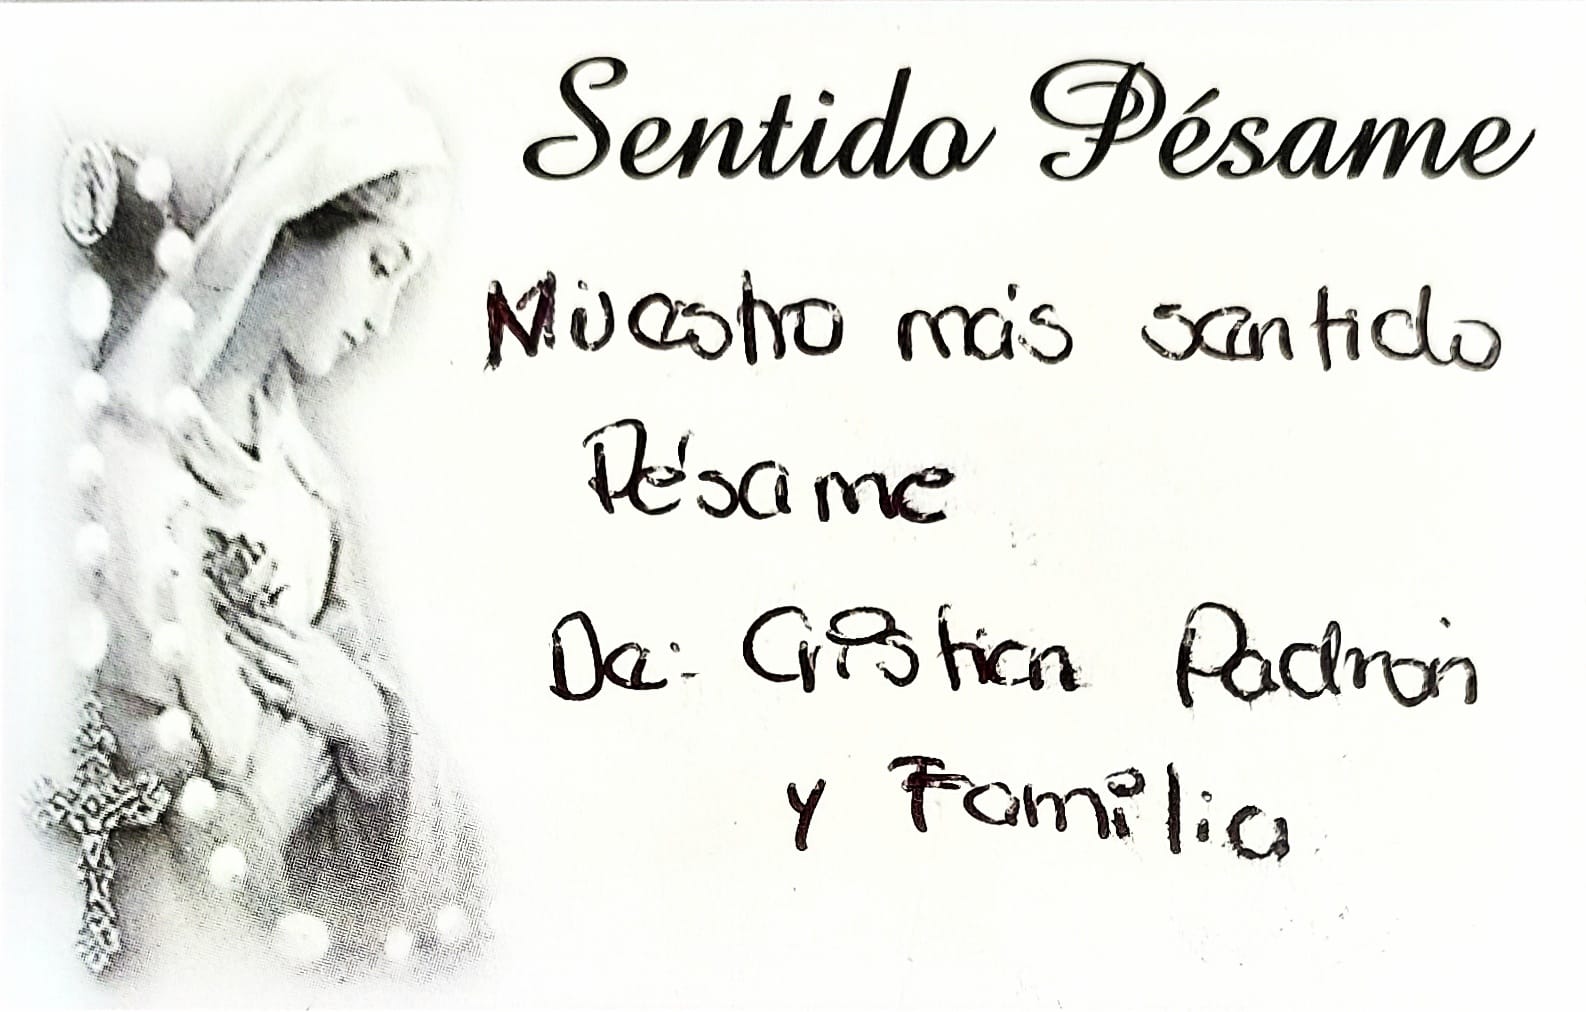 Sentido Pésame
Nuestro más sentido
Pésame
De: Cristian Padrón
y Familia